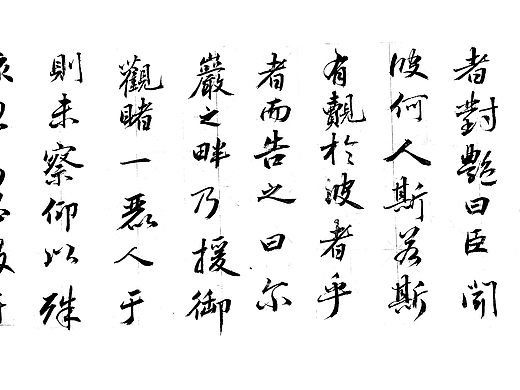 者對艷曰臣聞
彼何人斯若斯
有覿於彼者乎
者而告之曰尔
巖之畔乃援御
觀睹一麗人于
則未察仰以殊